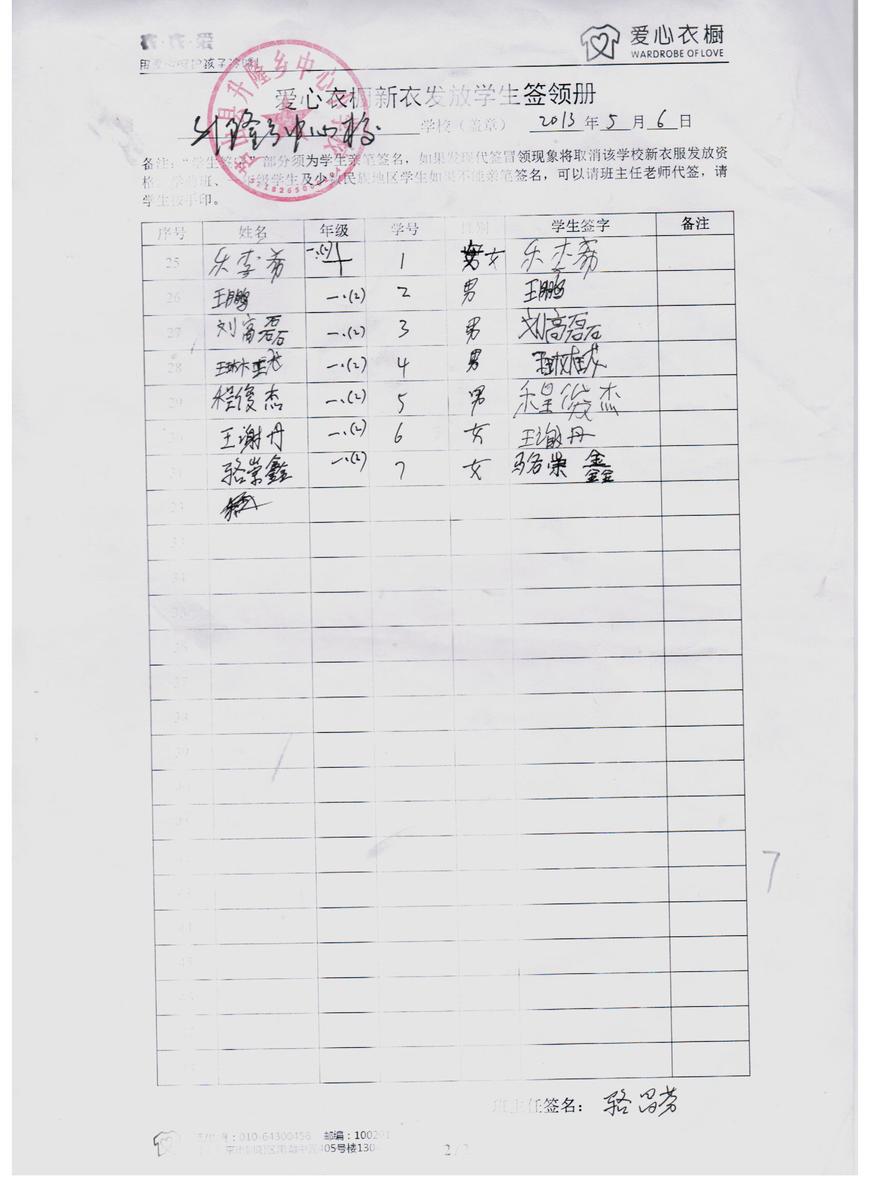 爱心衣橱
WARDROBE OF LOVE
爱心衣橱新衣发放学生签领册
升隆乡中心校 学校（盖章） 2013 年 5 月 6 日
备注：“学生签字”部分须为学生亲笔签名，如果发现代签冒领现象将取消该学校新衣服发放资
格。学前班、一年级学生及少数民族地区学生如果不能亲笔签名，可以请班主任老师代签，请
学生按手印。
序号 姓名 年级 学号 性别 学生签字 备注
25 乐李蒡 一.(2) 1 女 乐李蒡
26 王鹏 一.(2) 2 男 王鹏
27 刘高磊 一.(2) 3 男 刘高磊
28 一.(2) 4 男
29 程俊杰 一.(2) 5 男 程俊杰
30 王谢丹 一.(2) 6 女 王谢丹
31 骆崇鑫 一.(2) 7 女 骆崇鑫
33
34
36
37
38
39
7
班主任签名： 骆昌芳
：010-64300456 邮编：100201
405号楼130
2 / 2